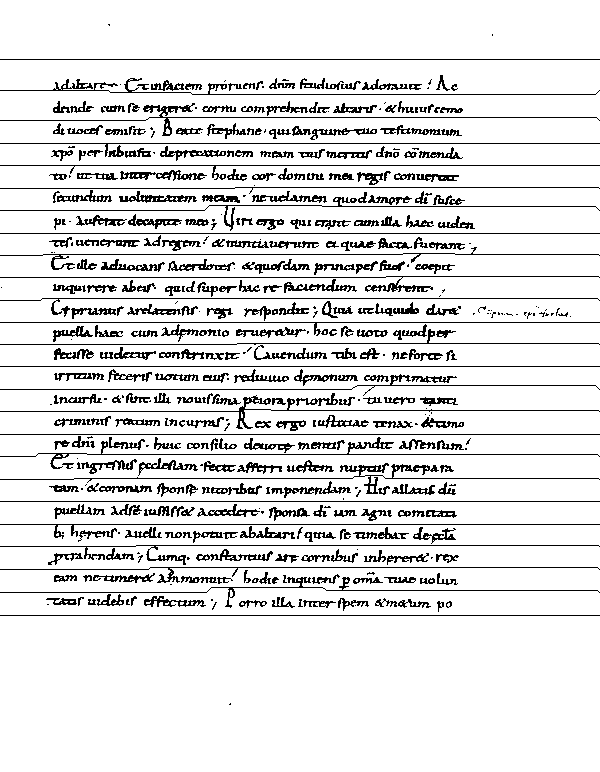 ad altare. Et in faciem proruens. dnm studiosius adorauit! Ac
deinde cum se erigeret. cornu comprehendit altaris. & huius cemo
di uoces emisit; Beate stephane. qui sanguine tuo testimonium
xpo per hibuisti. deprecationem meam tuis meritis dno commenda
to! ut tua inter cessione hodie cor domini mei regis conuertat
secundum uoluntatem meam. ne uelamen quod amore di susce
pi. auferat de capite meo; Uiri ergo qui erant cum illa haec uiden
tes. uenerunt ad regem! & nuntiauerunt ei quae facta fuerant;
Et ille aduocans sacerdotes. & quosdam principes suos! coepit
inquirere ab eis. quid super hac re faciendum censerent.;
Cyprianus arelatensis regi respondit; Quia ut liquido claret
puella haec cum a demonio erueretur. hoc se uoto quod per
fecisse uidetur constrinxit! Cauendum tibi est. ne forte si
irritum feceris uotum eius. rediuiuo demonum comprimatur
incursu. & sint illi nouissima peiora prioribus. tu uero tanti
criminis reatum incurras; Rex ergo iustitiae tenax. & timo
re dni plenus. huic consilio deuote mentis pandit assensum!
Et ingressus ecclesiam fecit afferri uestem nuptiis praepara
tam. & coronam sponse nitoribus imponendam; His allatis dum
puellam ad se iussisset accedere. sponsa di iam agni comitata
b; herens. auelli non potuit ab altari! quia se timebat de ecla
ptrahendam; Cumq. constantius arae cornibus inhereret. rex
eam ne timeret ammonuit! hodie inquiens p oma tuae uolun
tatis uidebis effectum; Porro illa inter spem & metum po